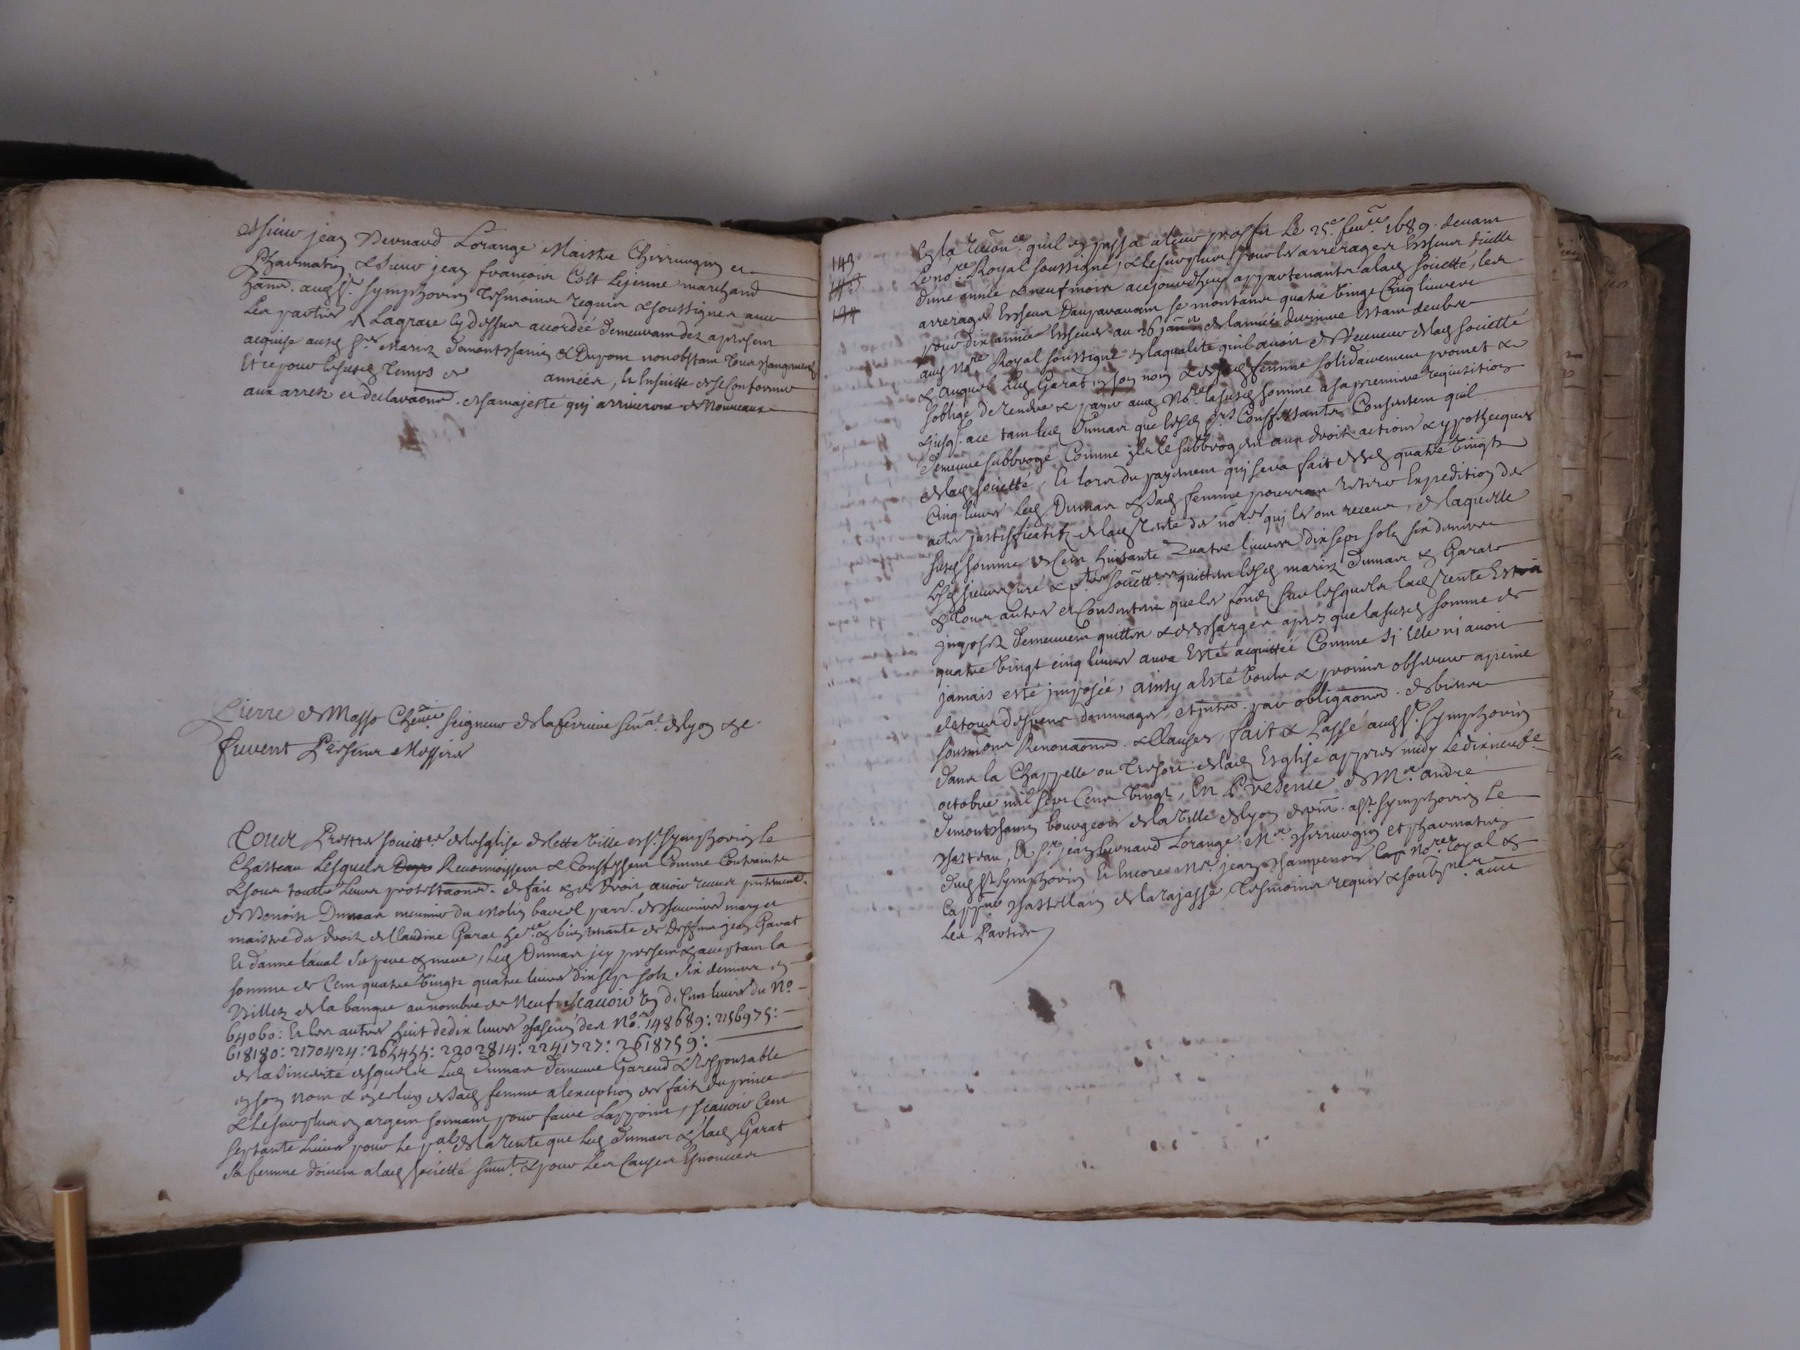 & sieur jean Bernard Lorange Maistre Chirurgien et
Pharmatien & sieur jean francois Colt Lejeune marchand
habit. aud St. Symphorien tesmoins requis & soussignes avec
Les parties & Lagrace cy dessus accordée demeurant dez apresent
acquise ausd. srs. Marin Demontchanin & Dupont nonobstant tous changements
Et ce pour lesusd temps de annéés, le Ensuitte de se Conformer
aux arrests et declaraons. de sa majesté qui arriveront de Nouveaux
Pierre de Masso Chevalier seigneur de la ferriere sénal. de lyon &c.
furent Presents Messires
Tous Prestres societtes de lesglise de Cette ville de St. Symphorien le
Chasteau Lesquels Recnoissent & Confessent Comme Contraints
& sous toutte leurs protestaons. de fait & de droit avoir receus presentemt.
de Benoist Dumare meunier du Molin parr. de mary et
maistre des droits de Claudine Garat & bien tenante de Deffunt jean Garat
Et danne laval ses pere & mere, led Dumare icy present & acceptant la
somme de Cent quatre vingts quatre livres dix sept sols six deniers en
Billets de la banque au nombre de Neuf scavoir un de Cent livres du No.
64060: Et les autres huit de dix livres chascun des Nos. 148689: 2156975:
618180: 2170424: 265455: 2202814: 2241727: 2618759:
de la sincerite desquels led Dumare demeure Garend & responsable
en son nom & de lad femme a lexception des faits du prince
& Le surplus en argent sonnant pour faire Lappoint, scavoir Cent
septante livres pour le pal. de la rente que led Dumare & lad Garat
sa femme doivent a lad Societté & pour Les Causes Enoncées
143
En la qu'il en passa a leur proffit Le 25e. fevrier 1689. devant
Le nore. Royal soussigné, & Le surplus pour les arrerages Escheus dicelle
dune année & neuf mois a cejourdhuy appartenants a lad Societté, les
arrerages Escheus Dauparavant se montants quatre vingt Cinq livres
pour dix années Escheues au 26 janr. de lannée derniere Estant deubs
aud Nre. Royal soussigné en la qualité quil avoit de Receveur de lad societté
& auquel led Garat en son nom & de lad femme solidairement promet &
soblige de rendre & payer aud Nore. lasusd somme a sa premiere requisition
& jusqs. a ce tant led Dumare que lesd srs Confessants Consentent quil
demeure subbrogé Comme ils le subbrogent aux droits actions & ypotheques
de lad societté, Et lors du payement qui sera fait desd quatre vingts
Cinq livres led Dumare & lad femme pourront retirer Expedition des
actes justifficatifs de lad rente des nores. qui les ont receus, de laquelle
susd somme de Cent huitante quatre livres dix sept sols six deniers
Lesd sieurs Curé & prtres. quittent lesd mariez Dumare & Garat
& tous autres et Consentent que les fonds sur lesquels lad rente Est
imposée demeurent quittes & deschargés apres que lasusd somme de
quatre vingt cinq livres aura Esté acquittée Comme si Elle n'avoit
jamais esté imposée, ainsy a Esté voulu & promis observer a peine
de tous despens dommages, & par obligaons. de biens
soumions Renonaons. & Clauses, fait & Passé aud St. Symphorien
dans la Chappelle ou Tresort de lad Esglise appres midy Le dixneufe
octobre mil sept Cent vingt, En Presence de Mr. andré
Demontchanin bourgeois de la ville de lyon demt. a St. Symphorien Le
Chasteau, & sr. jean bernard Lorange Me. chirurgien et pharmatien
dud St. Symphorien Et Encore Me. jean Champenois nore. royal &
Cappne Chastellain de larajasse, Tesmoins requis & soubsnez. avec
Les Parties